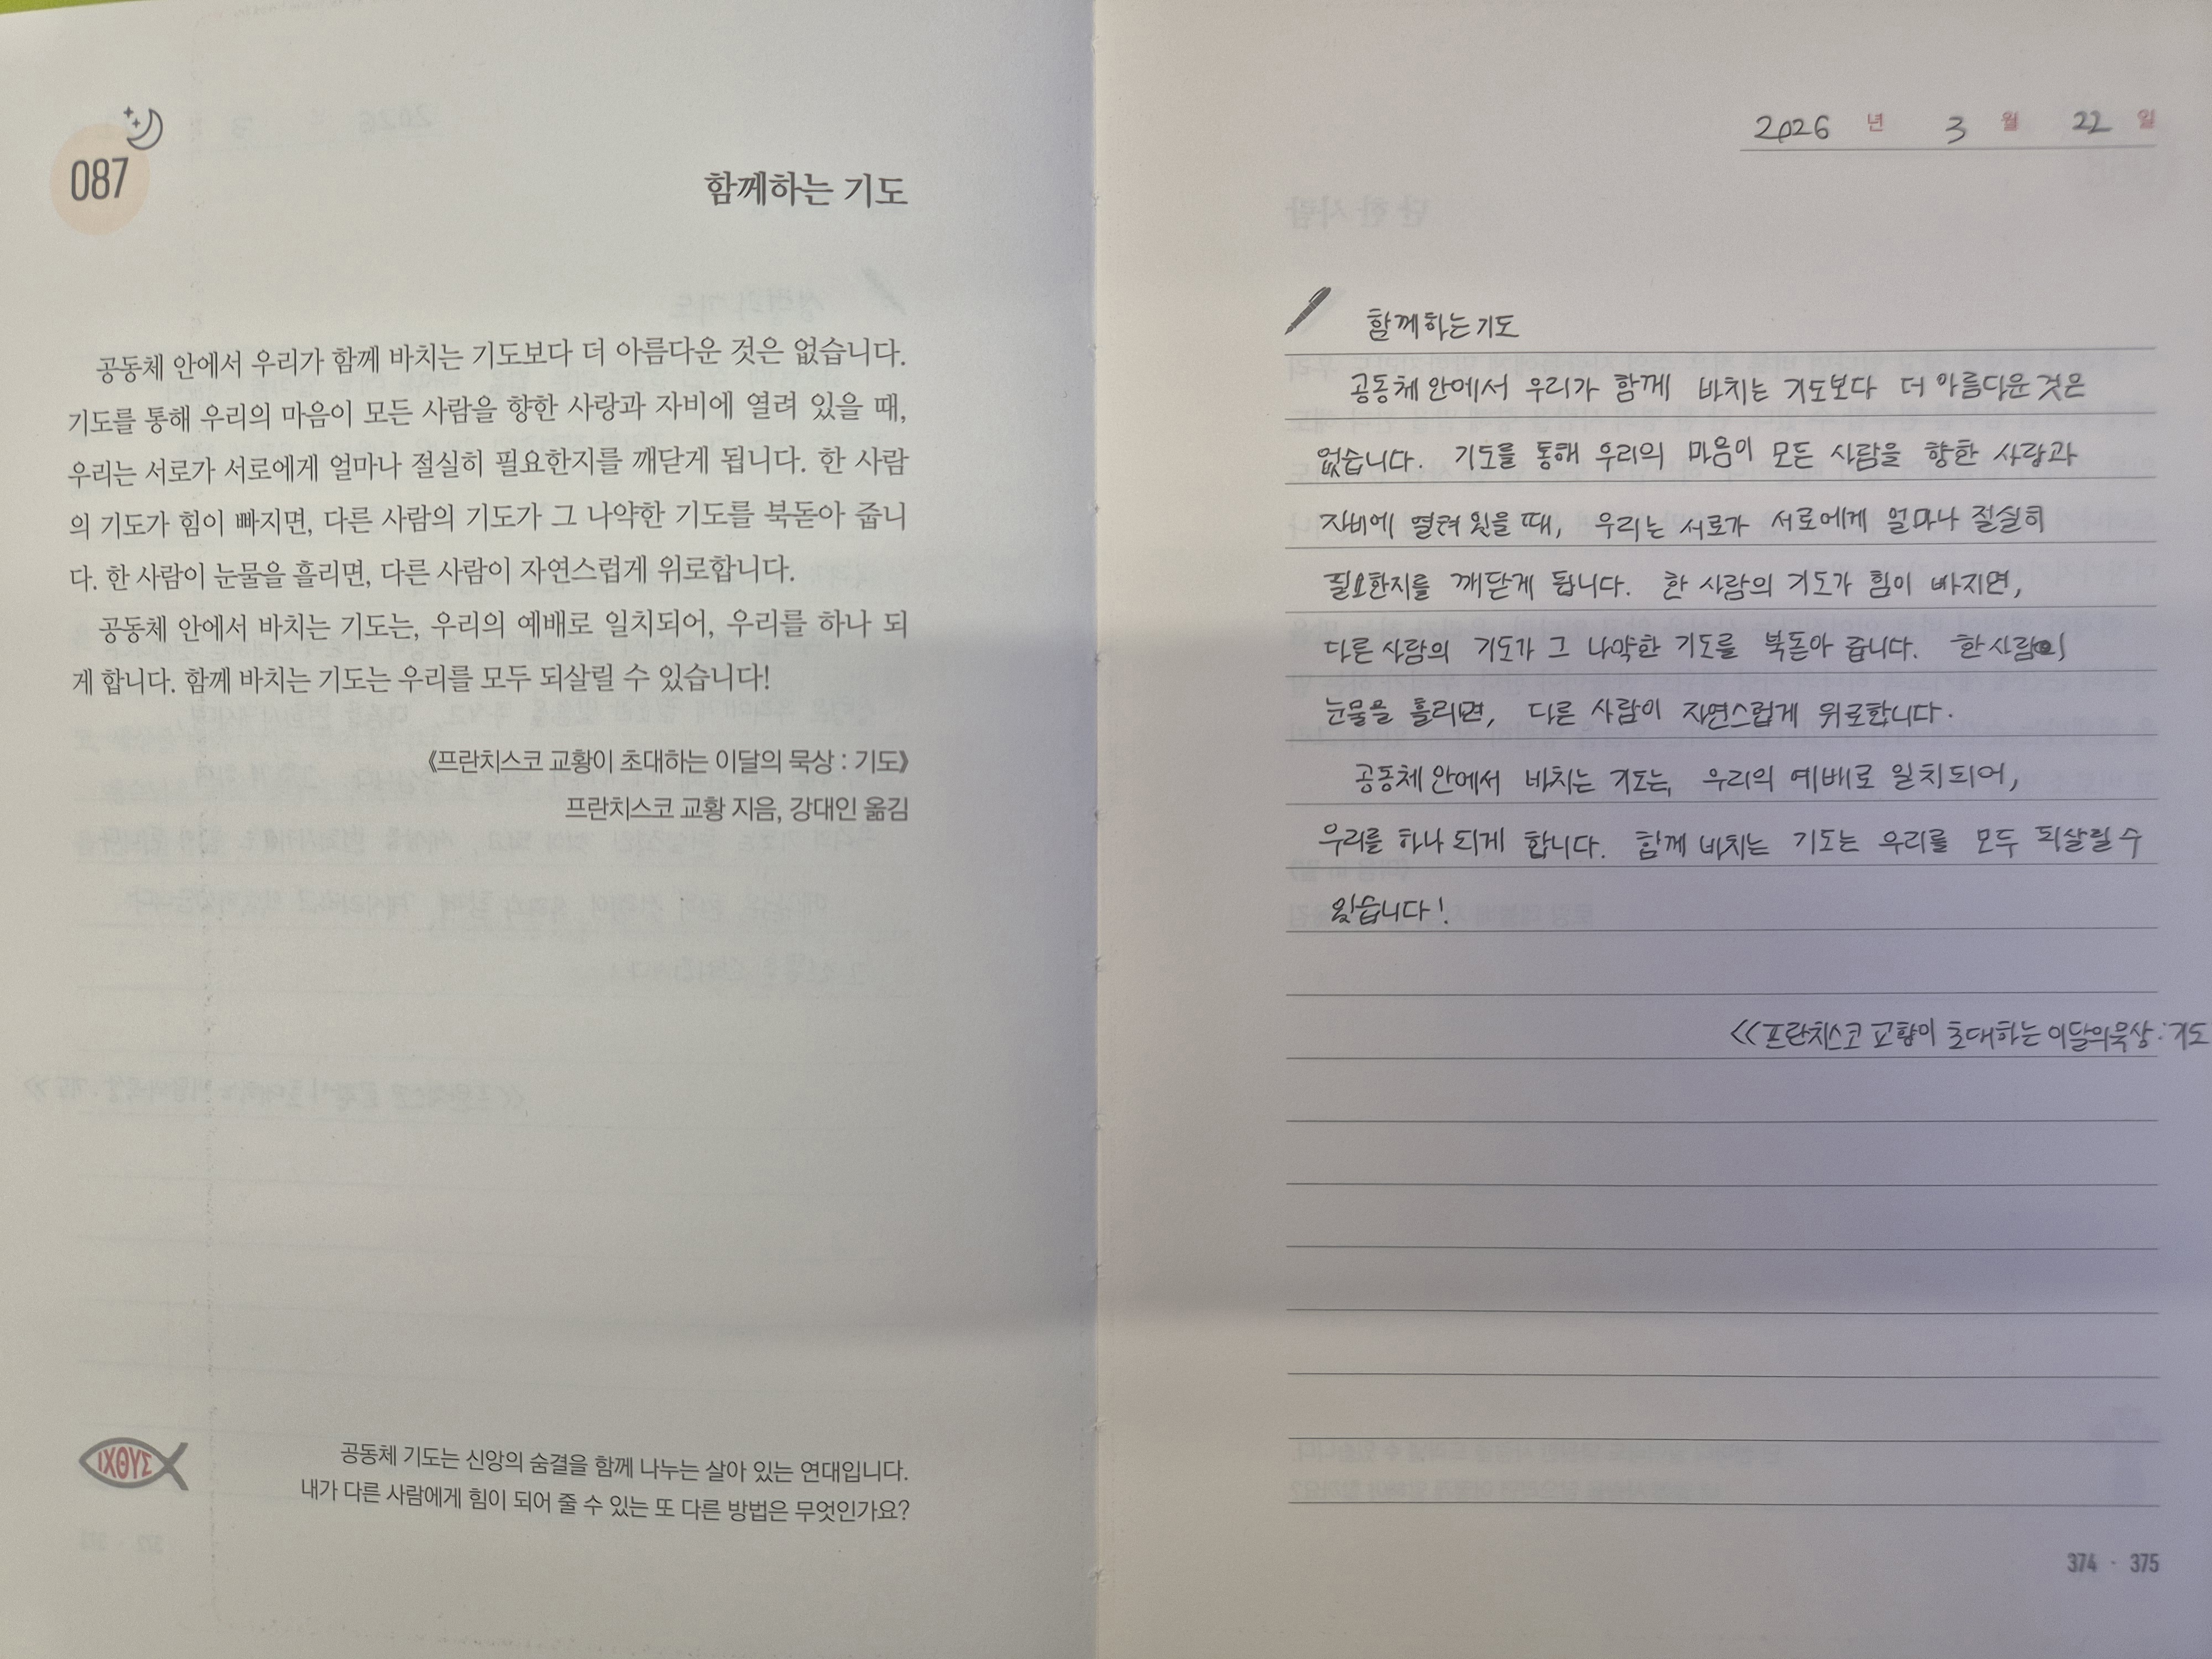 087
함께하는 기도
공동체 안에서 우리가 함께 바치는 기도보다 더 아름다운 것은 없습니다.
기도를 통해 우리의 마음이 모든 사람을 향한 사랑과 자비에 열려 있을 때,
우리는 서로가 서로에게 얼마나 절실히 필요한지를 깨닫게 됩니다. 한 사람
의 기도가 힘이 빠지면, 다른 사람의 기도가 그 나약한 기도를 북돋아 줍니
다. 한 사람이 눈물을 흘리면, 다른 사람이 자연스럽게 위로합니다.
공동체 안에서 바치는 기도는, 우리의 예배로 일치되어, 우리를 하나 되
게 합니다. 함께 바치는 기도는 우리를 모두 되살릴 수 있습니다!
《프란치스코 교황이 초대하는 이달의 묵상 : 기도》
프란치스코 교황 지음, 강대인 옮김
ΙΧΘΥΣ
공동체 기도는 신앙의 숨결을 함께 나누는 살아 있는 연대입니다.
내가 다른 사람에게 힘이 되어 줄 수 있는 또 다른 방법은 무엇인가요?
2026 년 3 월 22 일
함께하는 기도
공동체 안에서 우리가 함께 바치는 기도보다 더 아름다운 것은
없습니다. 기도를 통해 우리의 마음이 모든 사람을 향한 사랑과
자비에 열려 있을 때, 우리는 서로가 서로에게 얼마나 절실히
필요한지를 깨닫게 됩니다. 한 사람의 기도가 힘이 빠지면,
다른 사람의 기도가 그 나약한 기도를 북돋아 줍니다. 한 사람이
눈물을 흘리면, 다른 사람이 자연스럽게 위로합니다.
공동체 안에서 바치는 기도는, 우리의 예배로 일치되어,
우리를 하나 되게 합니다. 함께 바치는 기도는 우리를 모두 되살릴 수
있습니다!
<<프란치스코 교황이 초대하는 이달의 묵상 : 기도
374 · 375